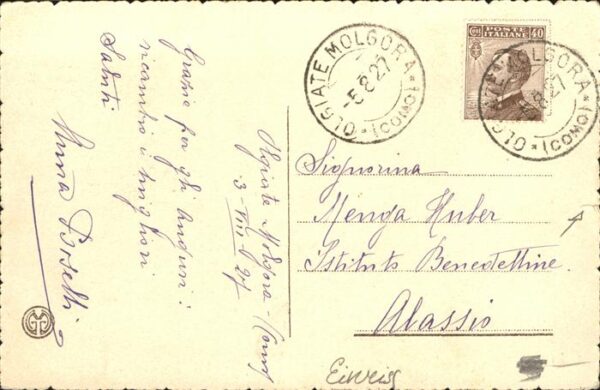 Grazie per gli auguri:
ricambio i migliori
Saluti
Anna Boselli
Olgiate Molgora - (Como)
3-VIII-27
OLGIATE MOLGORA
(COMO)
5.8.27
POSTE
ITALIANE
40
OLGIATE MOLGORA
(COMO)
8.27
Signorina
Menga Huber
Istituto Benedettine
Alassio